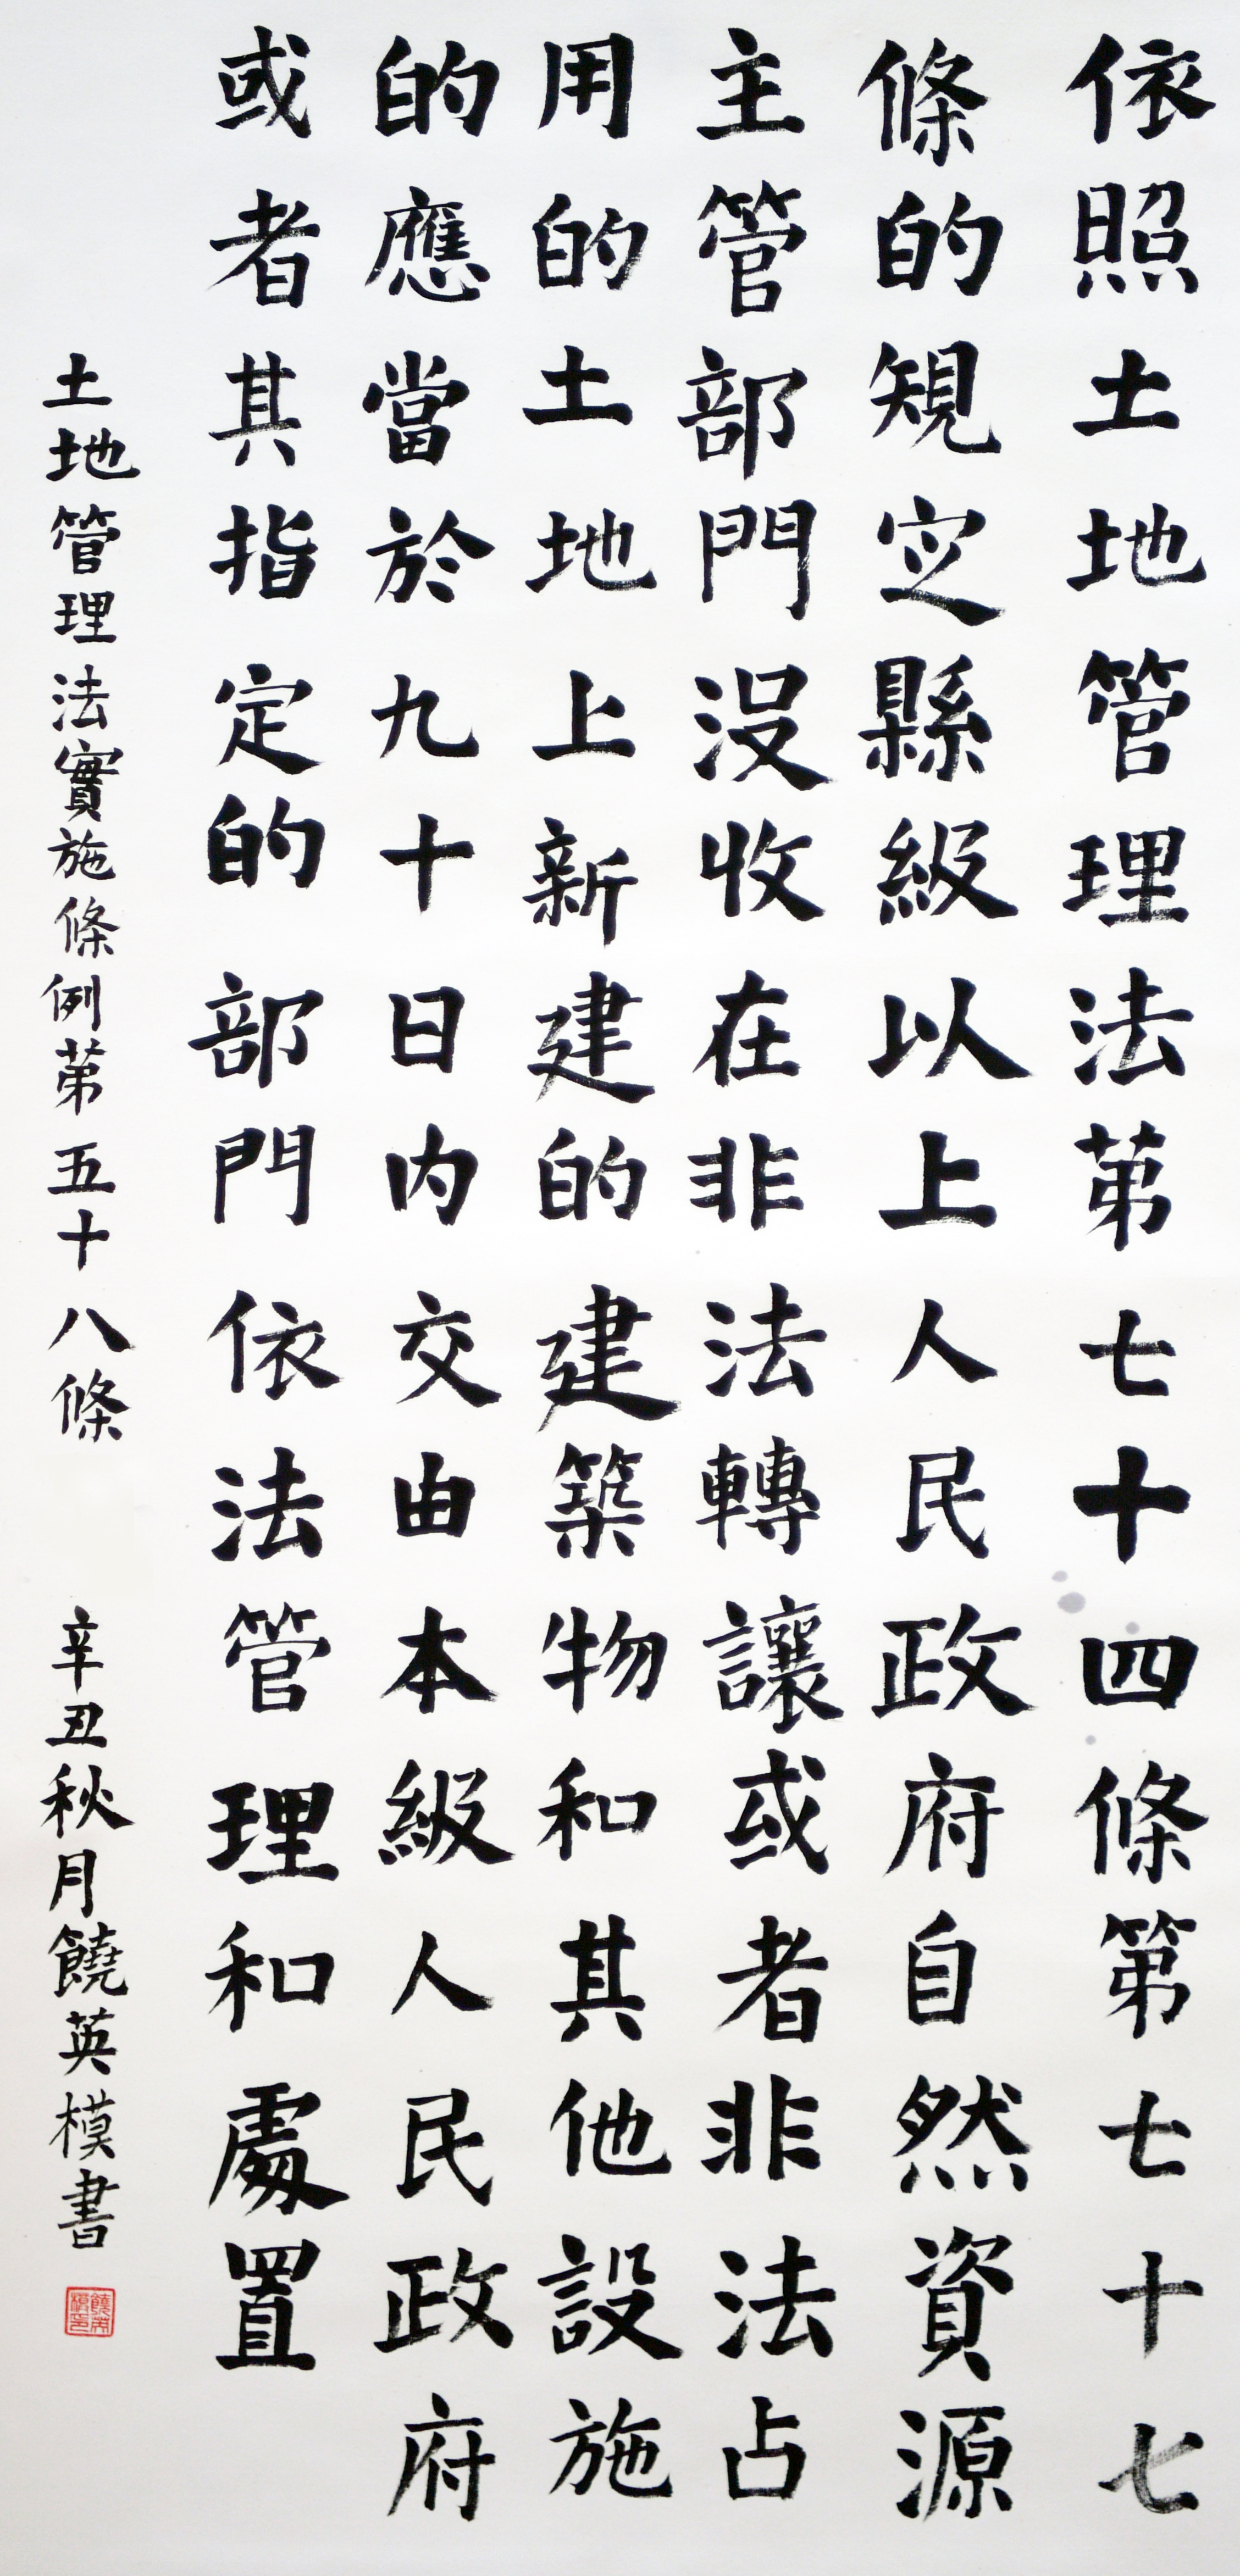 依照土地管理法第七十四條第七十七
條的規定縣級以上人民政府自然資源
主管部門没收在非法轉讓或者非法占
用的土地上新建的建築物和其他設施
的應當於九十日内交由本級人民政府
或者其指定的部門依法管理和處置
土地管理法實施條例第五十八條 辛丑秋月饒英模書